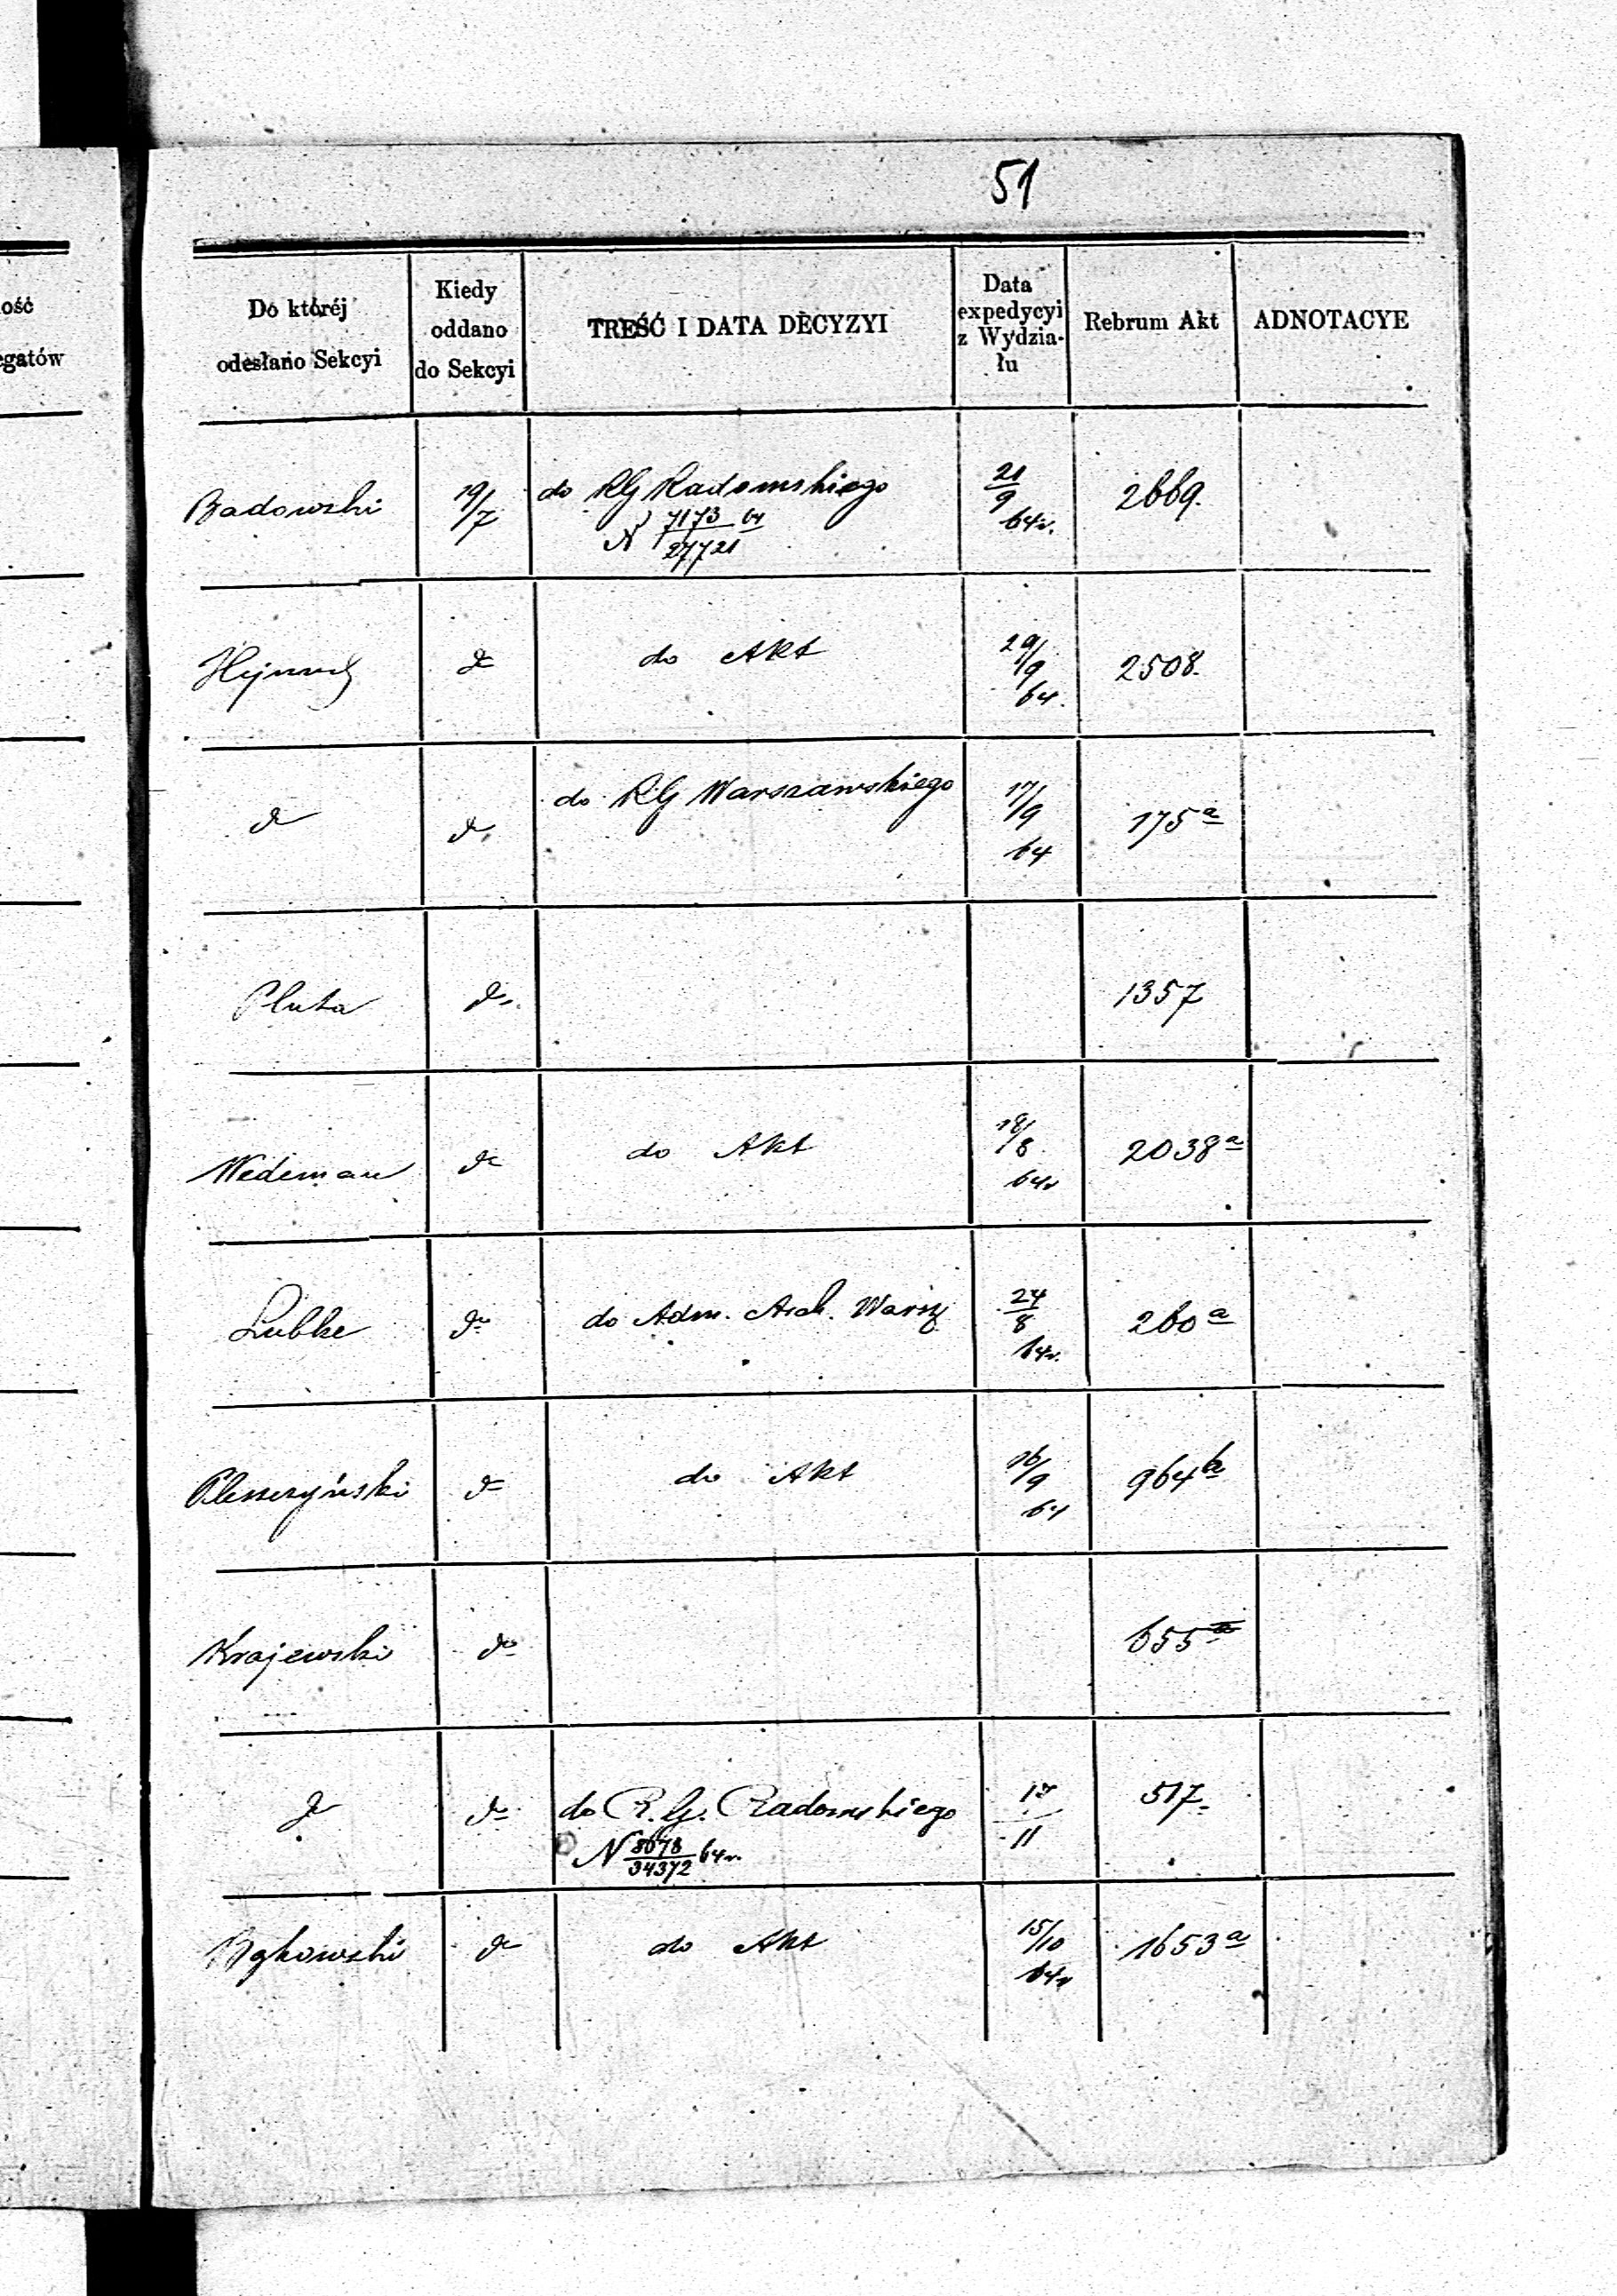 51
ość
egatów
Do któréj
odesłano Sekcyi
Kiedy
oddano
do Sekcyi
TREŚĆ I DATA DECYZYI
Data
expedycyi
z Wydzia-
łu
Rebrum Akt
ADNOTACYE
Badowski
19/7
do RG Radomskiego
N 7173/27721 64
21/9
64r.
2669.
do
do Akt
29/9
64.
2508.
do
do
do RG Warszawskiego
17/9
64
175a
Pluta
do
1357
Wedeman
do
do Akt
18/8
64r
2038a
Lubke
do
do Adm. Arch. Warsz
24/8
64r.
260a
Pleszczyński
do
do Akt
16/9
64
964b
Krajewski
do
655
do
do
do R. G. Radomskiego
N 8678/34372 64r.
17/11
517.
Bykowski
do
do Akt
15/10
64r
1653a